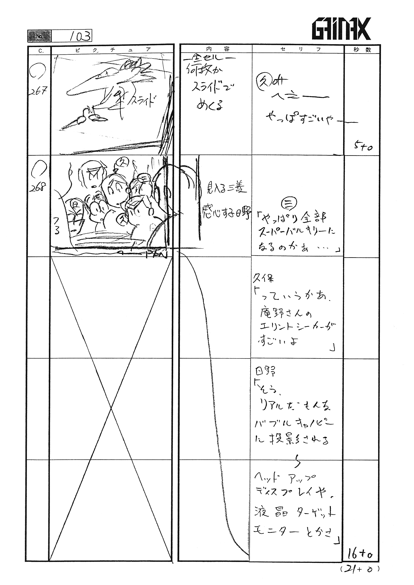 GAINAX
103
C.
ピクチュア
内容
セリフ
秒数
267
スライド
全セル
何枚か
スライドで
めくる
久
やっぱすごいやー
5+0
268
PAN
見入る三善
感心する日野
三
「やっぱり全部
スーパーバルキリーに
なるのかぁ…」
久保
「っていうかぁ、
庵野さんの
エリントシーカーが
すごいよ」
日野
「そう、
リアルだもんな
バブルキャノピー
に投影される
ヘッドアップ
ディスプレイや、
液晶ターゲット
モニターとかさ」
16+0
(21+0)